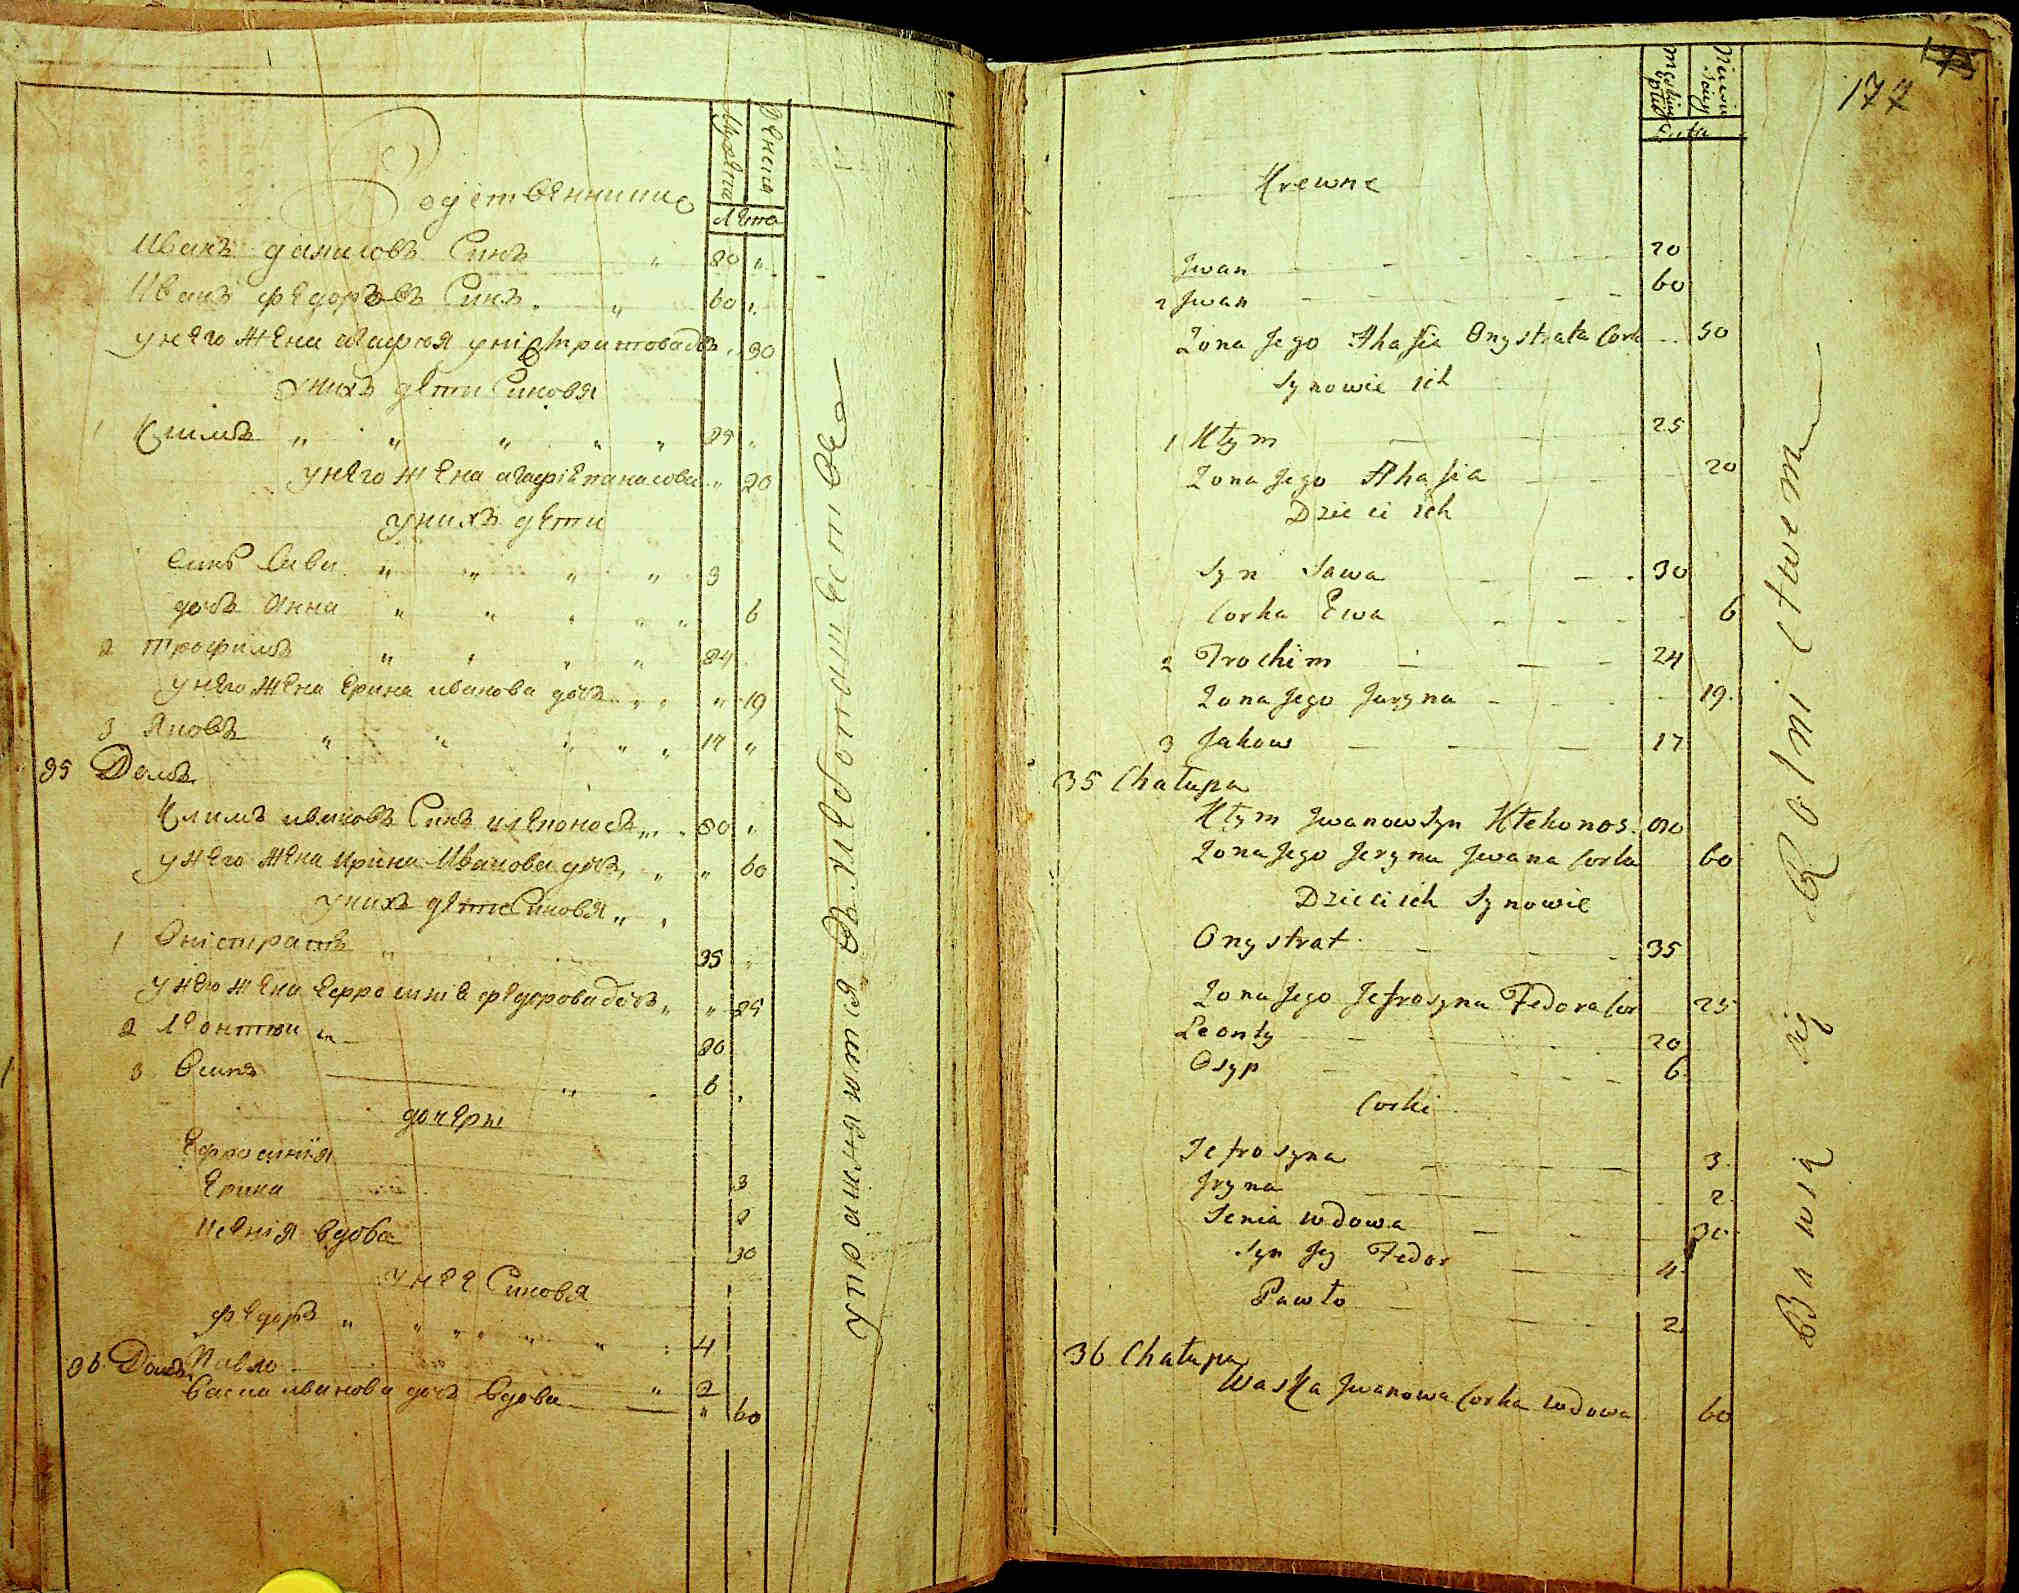 Мужеска
Женска
Лета
Родственники
Иванъ даниловъ Синъ " 80 "
Иванъ федоровъ Синъ " 60 "
унего жена агафія
" 30
унихъ дети Синовя
1 Климъ " " " " " 25 "
унего жена агафіе панасова " 20
унихъ дети
синъ Сава " " " " 3
дочъ Анна " " " " " 6
2 Трофимъ " " " " 24
унего жена Ерина иванова дочъ " " " 19
3 Яковъ " " " " " 17 "
35 Домъ
Климъ ивановъ Синъ клеконосъ " 80 "
унего жена ирина Иванова дочъ " " " 60
унихъ дети Синовя "
1 Оністратъ " 35 "
унего жена Ефросиніе федорова дочъ " " 25
2 Леонтои 20
3 Осипъ " 6
дочеры
Ефросинія 3
Ерина 2
Ксенія вдова 30
унее Синовя
федоръ " " " " " " 4
Павло " 2
36 Домъ
Васка иванова дочъ вдова " 60
упражняются Въ хлебопашестве
177
175
Lata
Krewne
Jwan 20
2 Jwan 60
Zona Jego Ahasia Onystrata Cork 50
Synowie ich
1 Kłym 25
Zona Jego Ahasia 20
Dzieci ich
Syn Sawa 30
Corka Ewa 6
2 Trochim 24
Zona Jego Jaryna 19.
3 Jakow 17
35 Chałupa
Kłym Jwanow Syn Kłekonos. 80
Zona Jego Jeryna Jwana Corka 60
Dzieci ich Synowie
Onystrat 35
Zona Jego Jefrosyna Fedora Cor 25
Leonty 20
Osyp 6
Corki
Jefrosyna 3.
Jryna 2.
Senia wdowa 30
Syn Jey Fedor 4.
Pawło 2.
36 Chałupa
Waska Jwanowa Corka wdowa 60
Bawią się Rolnictwem